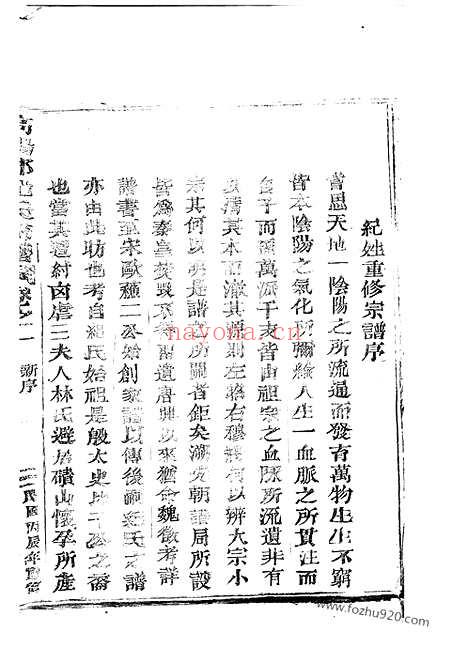 紀姓重修宗譜序
嘗思天地一陰陽之所流通而發育萬物生生不窮
皆本陰陽之氣化所彌綸人生一血脈之所貫注而
子而孫萬派千支皆由祖宗之血脈所流遺非有
以清其本而澈其源則左昭右穆將何以辨大宗小
宗其何以明是譜所關者鉅矣溯先朝譜局所設
皆為秦皇焚毀不留遺唐興以來猶命魏徵考詳
譜書至宋歐蘇二公始創家譜以傳後嗣紀氏之譜
亦由此昉也考自紀氏始祖是殷太史比干公之裔
也當其遭紂肉虐三夫人林氏避於磧山懷孕所產
高陽郡 卷之一 新序 一 民國丙辰年重修
nayona.cn
www.fozhu920.com